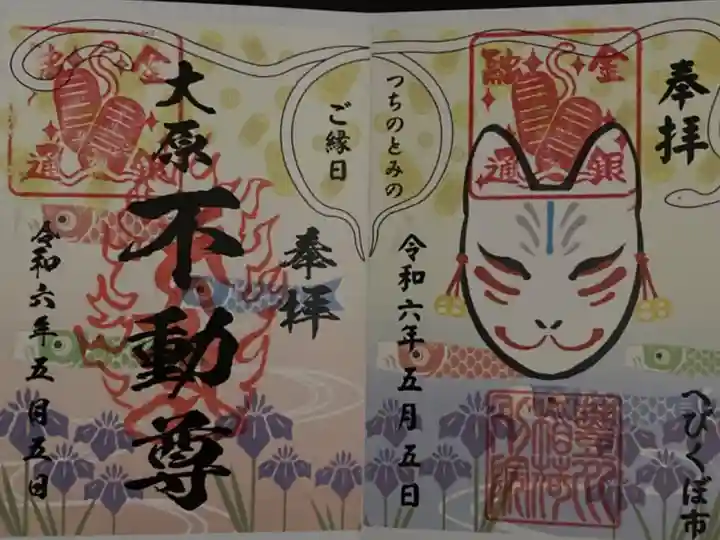 奉拝
金銀融通
つちのとみの
ご縁日
令和六年五月五日
へびくぼ市
大原
不動尊
奉拝
金銀融通
令和六年五月五日